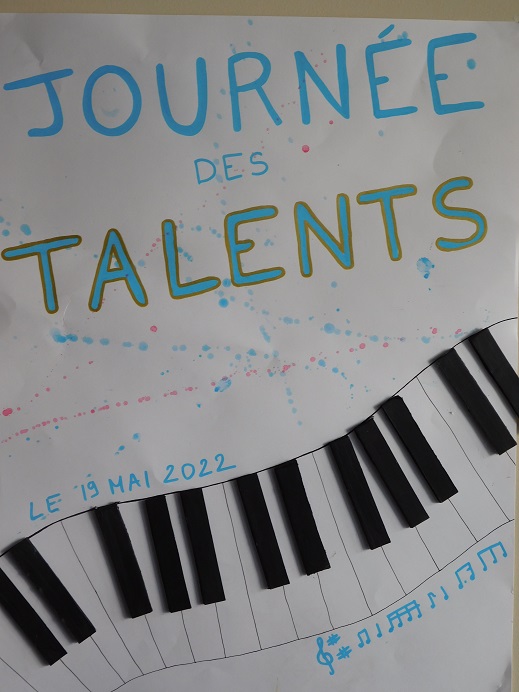 JOURNÉE
DES
TALENTS
LE 19 MAI 2022